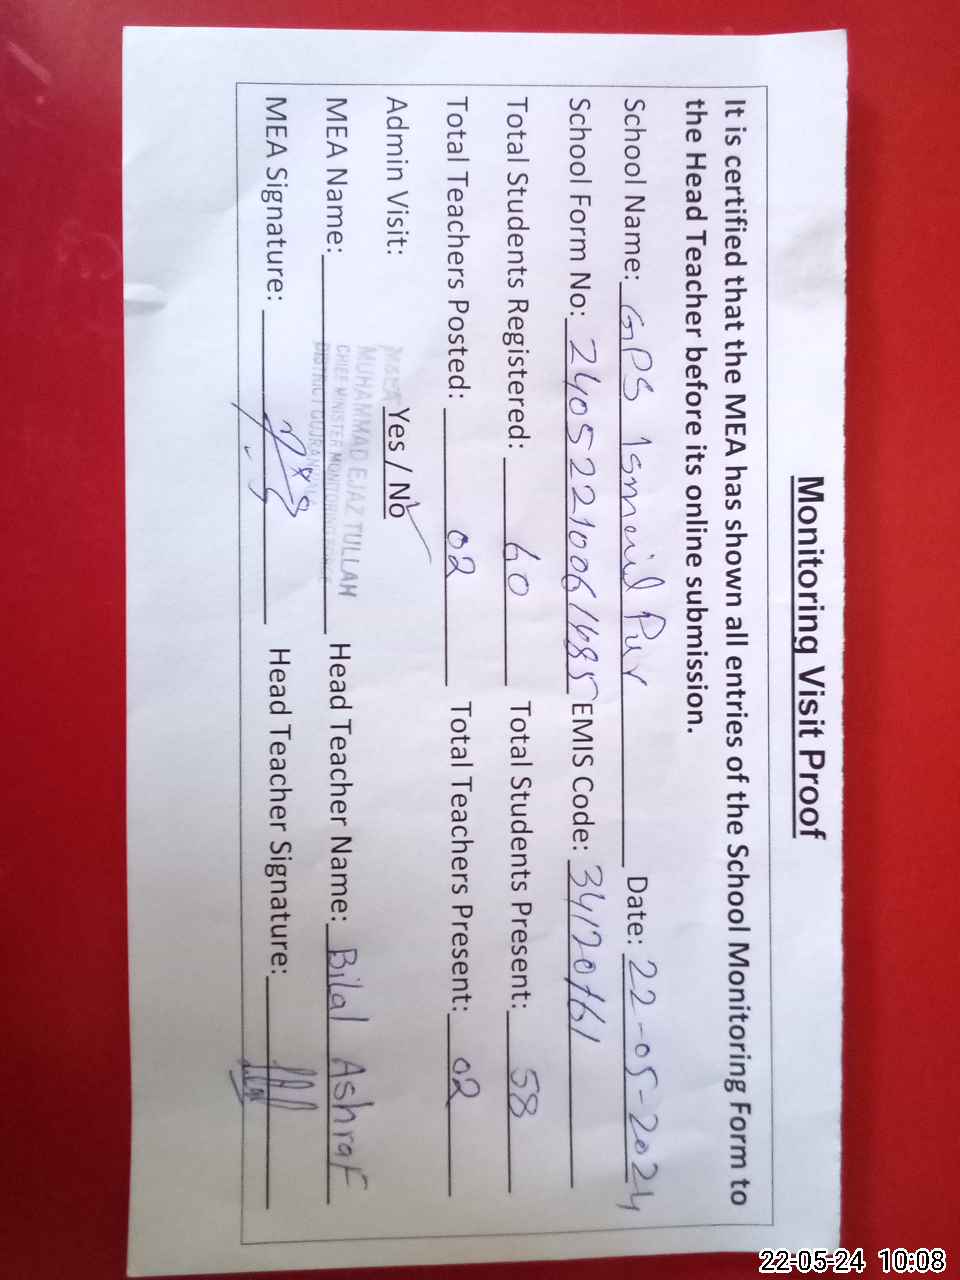 Monitoring Visit Proof
It is certified that the MEA has shown all entries of the School Monitoring Form to
the Head Teacher before its online submission.
School Name: GPS Ismail Pur Date: 22-05-2024
School Form No: 24052210061485 EMIS Code: 34120161
Total Students Registered: 60 Total Students Present: 58
Total Teachers Posted: 02 Total Teachers Present: 02
Admin Visit: Yes / No
MUHAMMAD EJAZ TULLAH
CHIEF MINISTER MONITORING FORCE
DISTRICT GUJRANWALA
MEA Name: Head Teacher Name: Bilal Ashraf
MEA Signature: Head Teacher Signature:
22-05-24 10:08